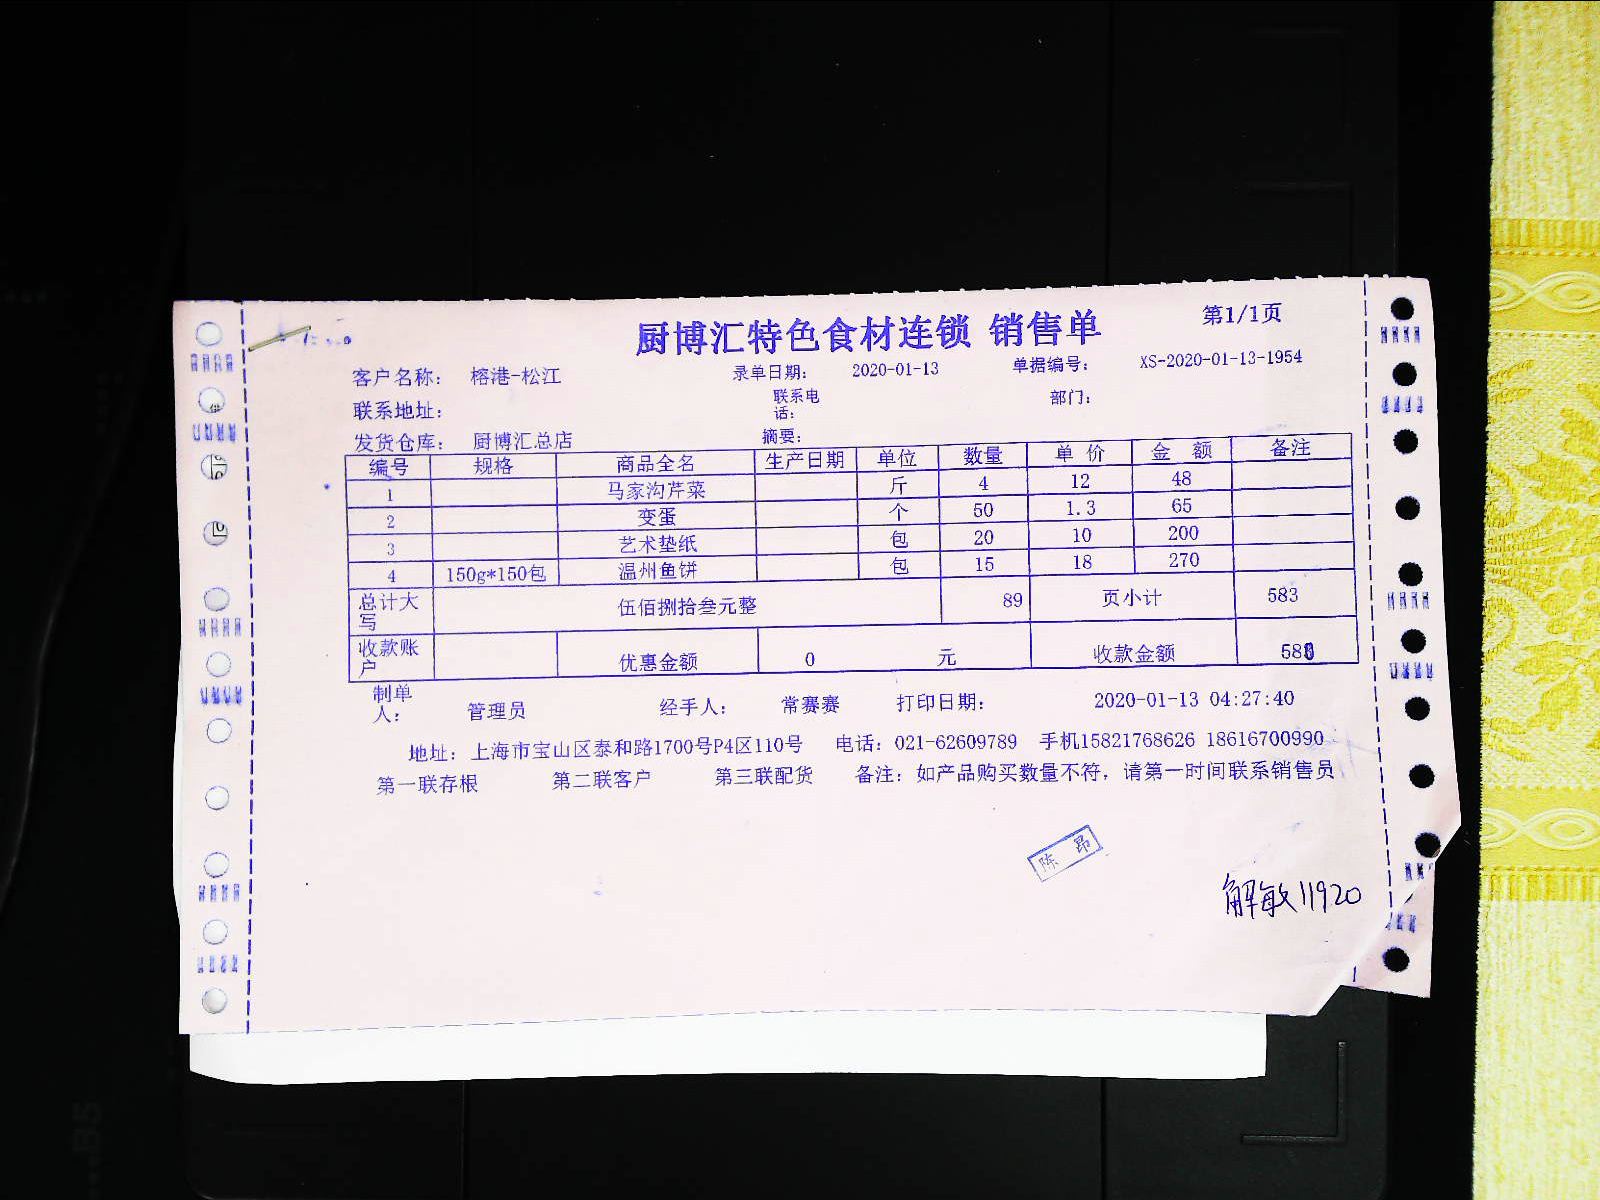 厨博汇特色食材连锁 销售单 第1/1页
客户名称： 榕港-松江 录单日期： 2020-01-13 单据编号： XS-2020-01-13-1954
联系地址： 联系电话： 部门：
发货仓库： 厨博汇总店 摘要：
编号 规格 商品全名 生产日期 单位 数量 单 价 金 额 备注
1 马家沟芹菜 斤 4 12 48
2 变蛋 个 50 1.3 65
3 艺术垫纸 包 20 10 200
4 150g*150包 温州鱼饼 包 15 18 270
总计大写 伍佰捌拾叁元整 89 页小计 583
收款账户 优惠金额 0 元 收款金额
制单人： 管理员 经手人： 常赛赛 打印日期： 2020-01-13 04:27:40
地址：上海市宝山区泰和路1700号P4区110号 电话：021-62609789 手机15821768626 18616700990
第一联存根 第二联客户 第三联配货 备注：如产品购买数量不符，请第一时间联系销售员
陈 昂
解敏11920